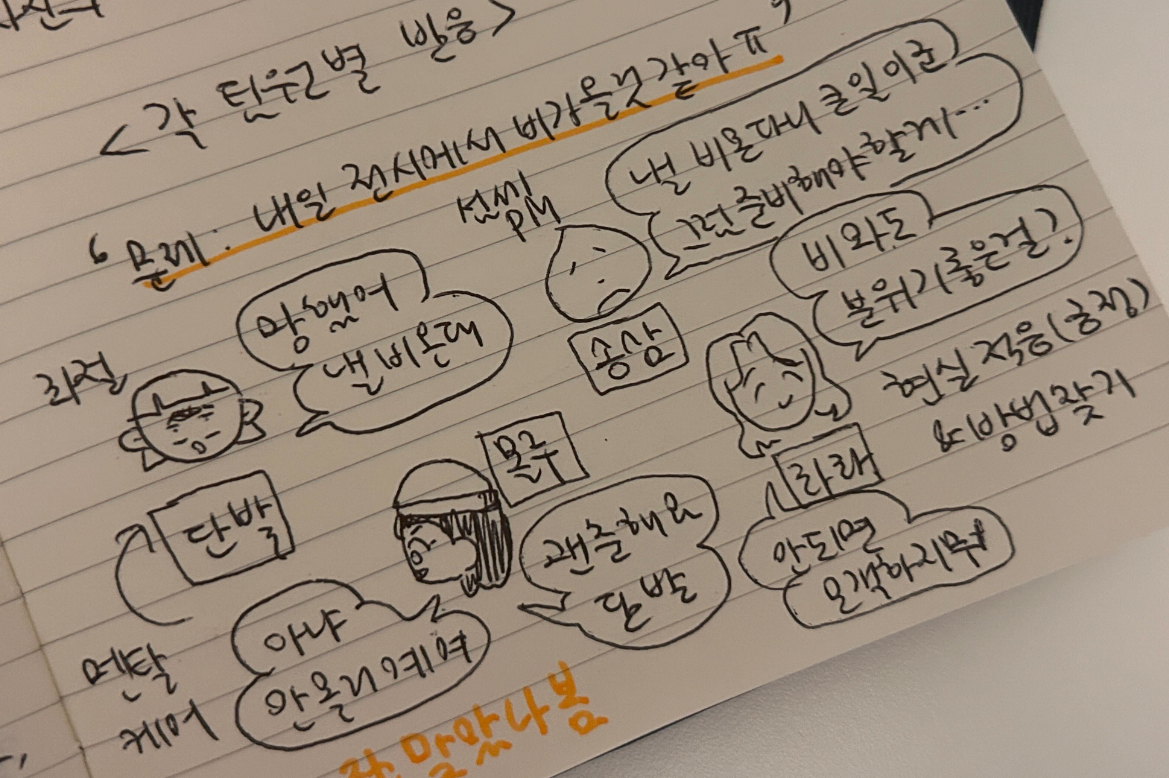 <각 턴원별 반응>
"문제: 내일 전시에서 비가올것같아 ㅠ"
선씨
PM
낼 비온다니 큰일이군
그럼 준비해야할께...
비와도
분위기좋은걸?
망했어
낼비온대
좌절
송삼
현실적응(긍정)
&방법찾기
몬구
라래
단발
괜츈해요
단발
안되면
모객하지뭐
멘탈
케어
아냐
안올리예여
잘맞나봄